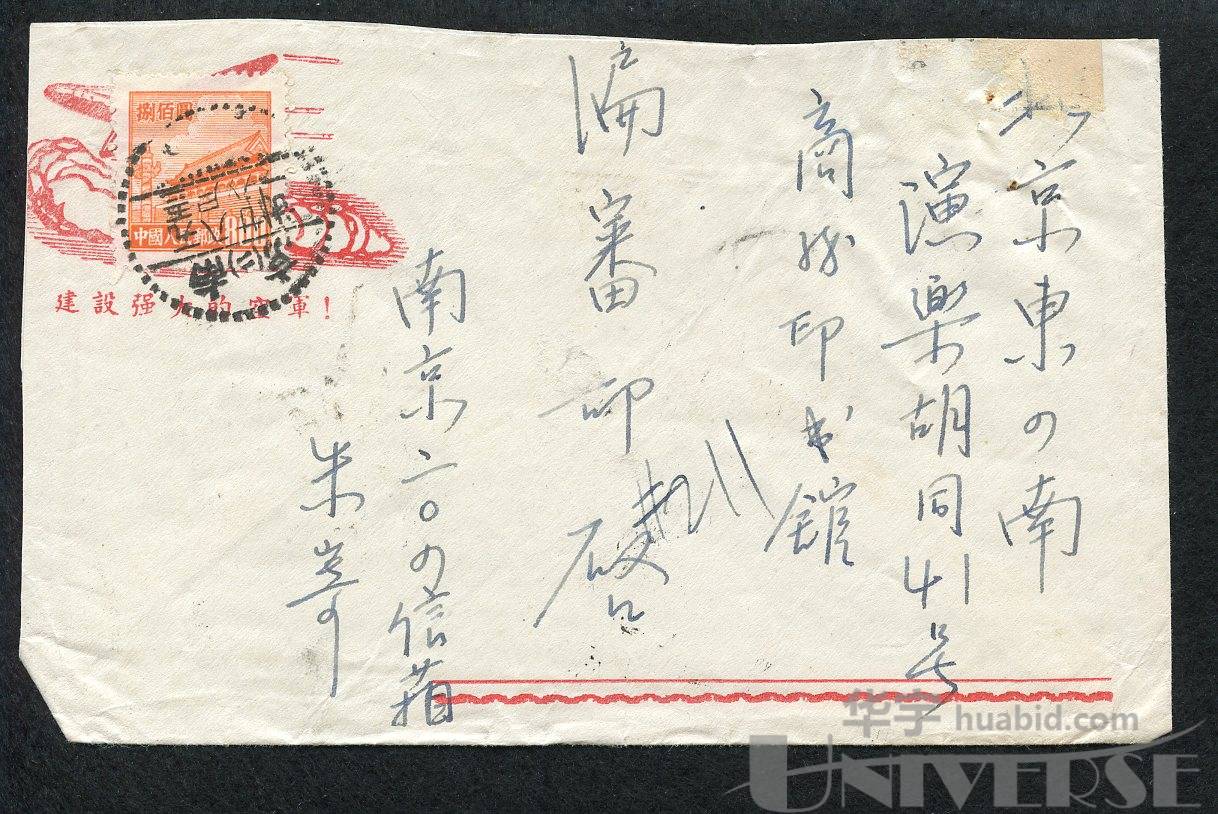 北京東四南
演樂胡同41号
商務印书館
編審部啓
南京二〇四信箱
朱寄
捌佰圓
中國人民郵政800
建設强大的空軍！
华宇 huabid.com
UNIVERSE